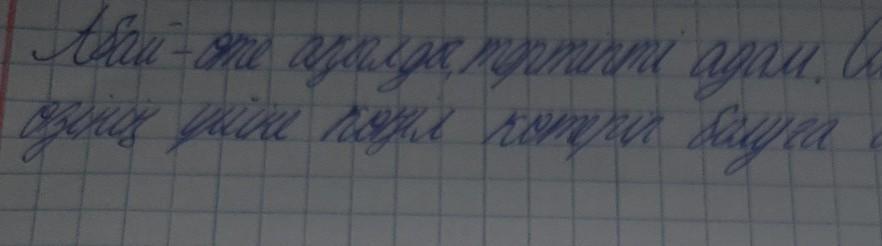 Абай - өте ақылды, тәртіпті адам.
өзінің үйіне көңіл көтеріп баруға